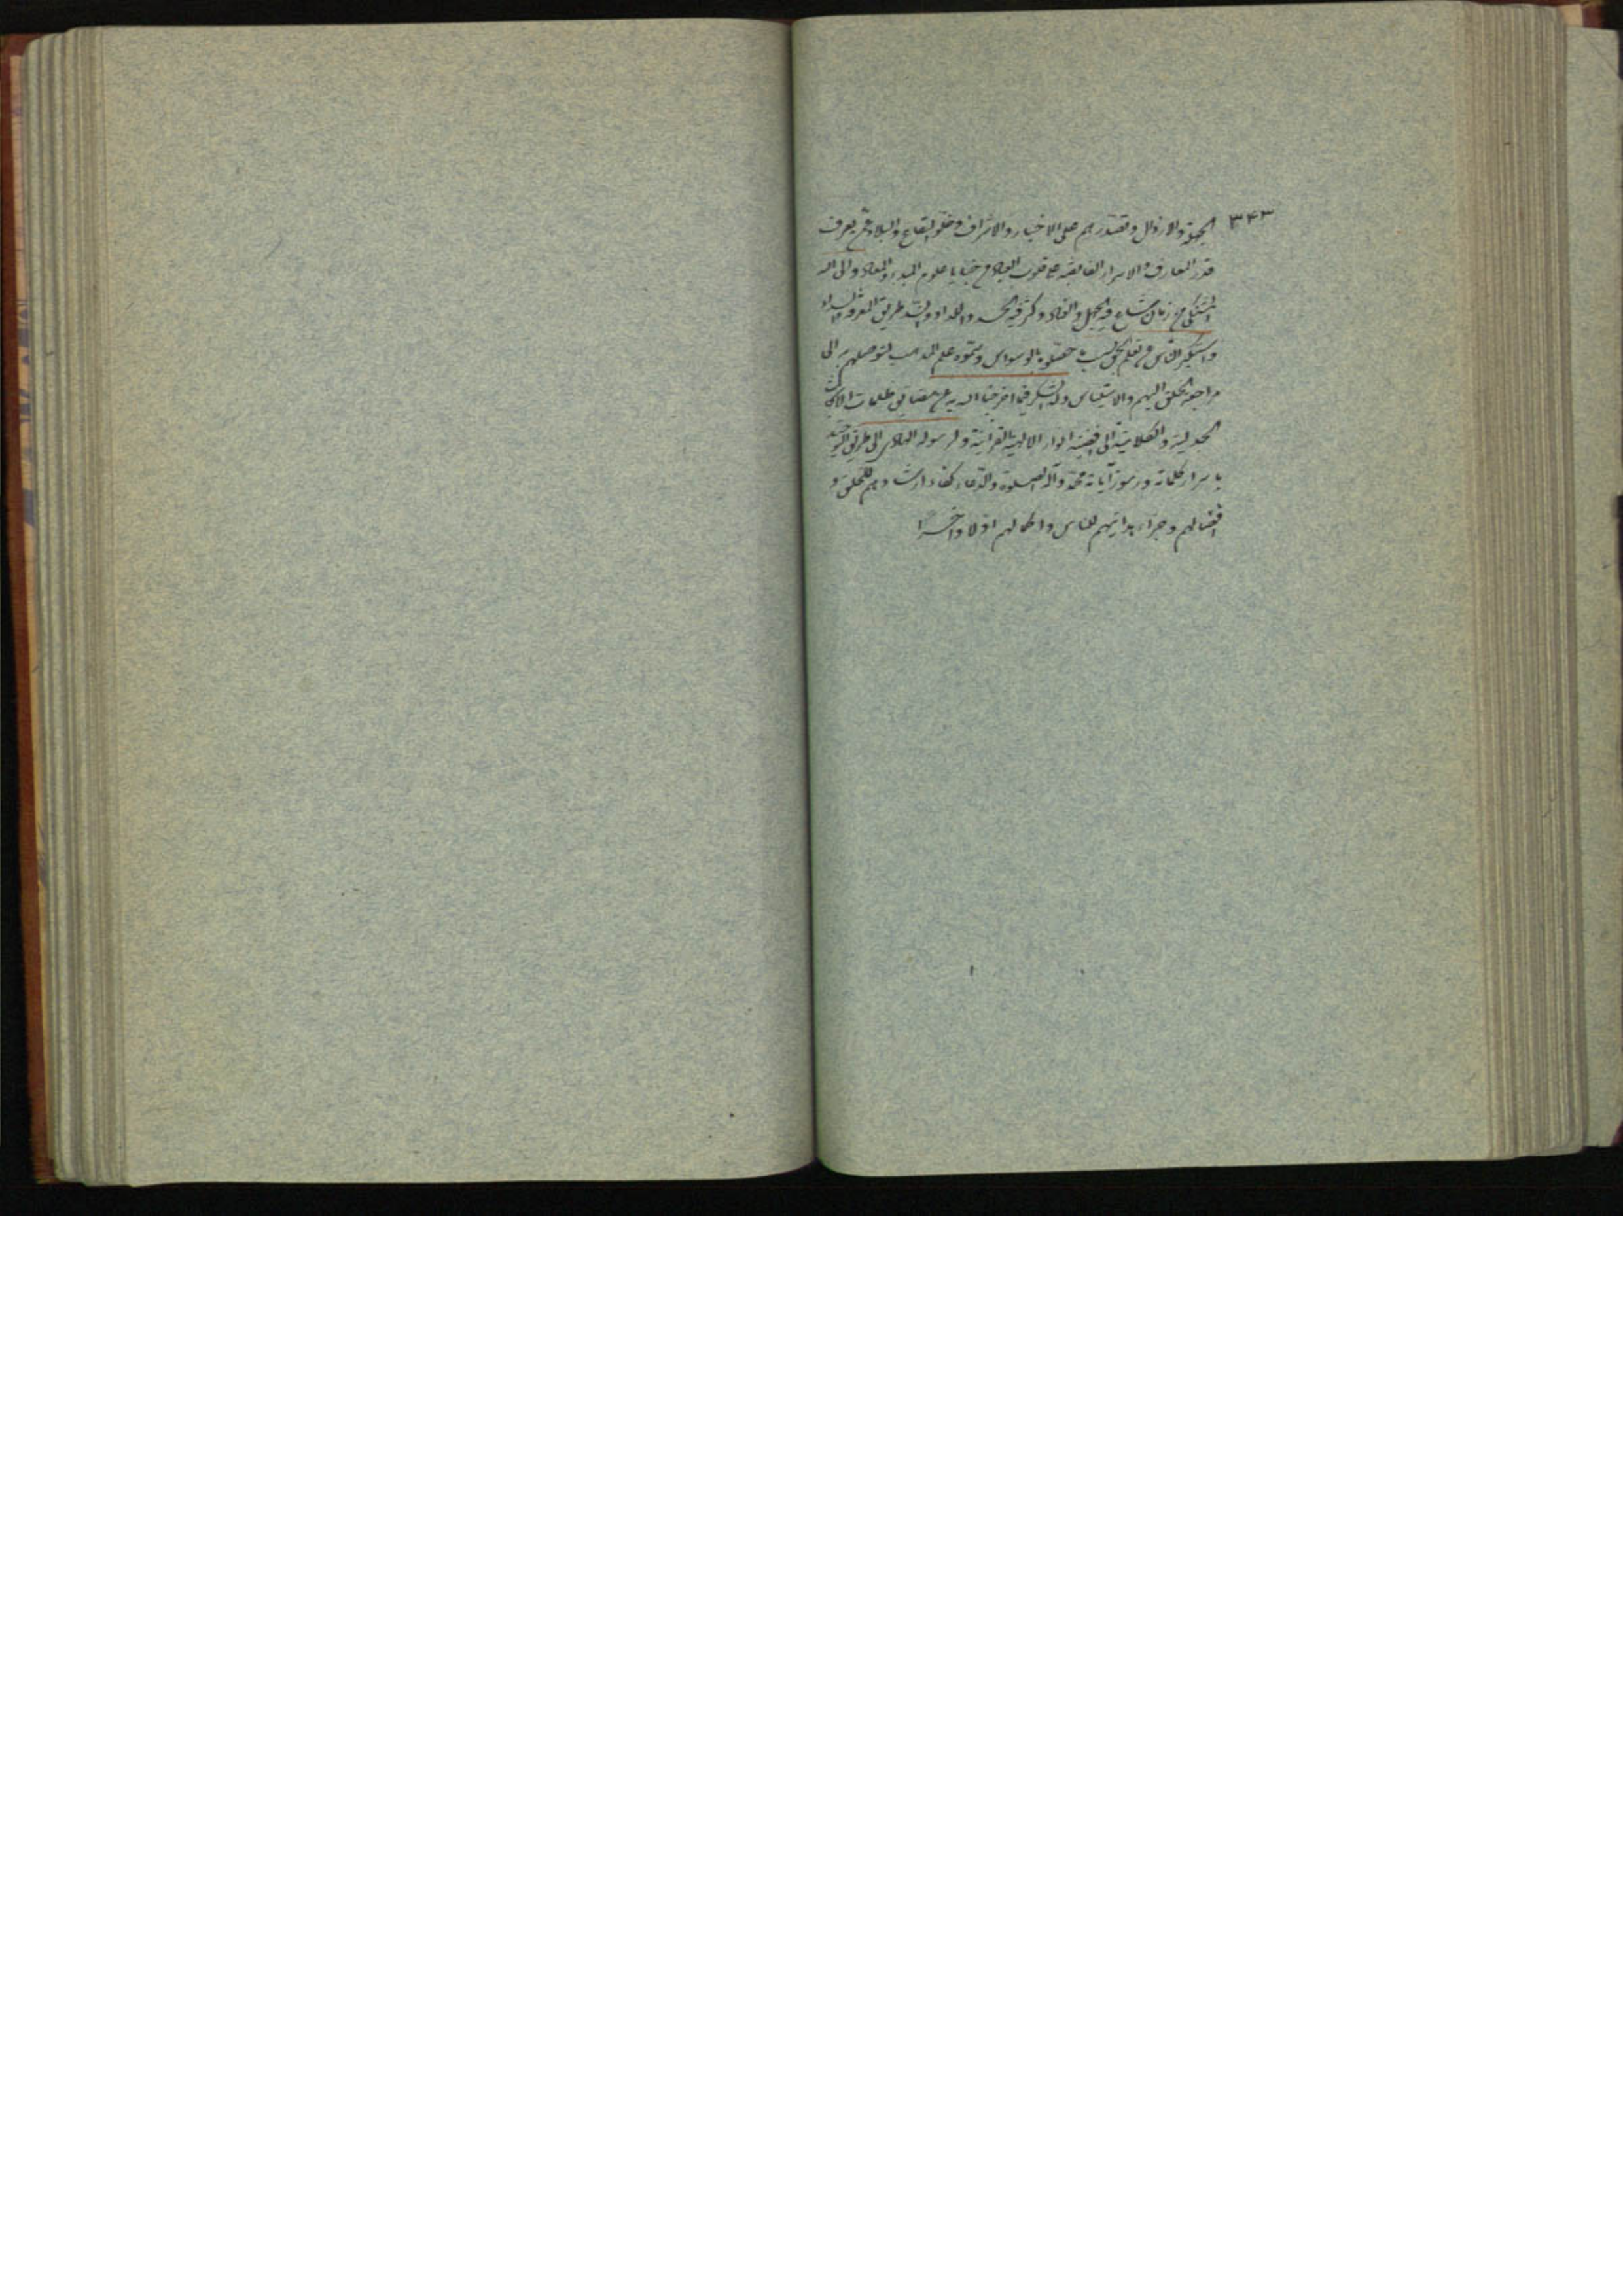 ٣٤٣
الجهلة والارذال وتصدرهم على الاخيار والاشراف وخلو البقاع والبلاد عمن يعرف
قدر المعارف والاسرار الفايضة على قلوب العباد من خبايا علوم المبدء والمعاد والى الله
المشتكى من زمان شاع فيه الجهل والفساد وكثر فيه الحسد واللداد وانسد طريق المعرفة والسداد
واستكبر الناس عن تعلم الحق بسبب ما حصلوه بالوسواس وسموه علم المذهب لتوصلهم به الى
مراجعة الخلق اليهم والاستيناس وله الشكر فيما اخرجنا الله به عن مضايق ظلمات الابحاث
الجدلية والكلامية الى فضية انوار الالهية القرآنية ولرسوله الهادي الى طريق التوحيد
باسرار كلماته ورموز آياته محمد وآله الصلوة والدعاء كفاء ارشادهم للخلق و
افضالهم وجزاء هدايتهم للناس واكمالهم اولا وآخرا